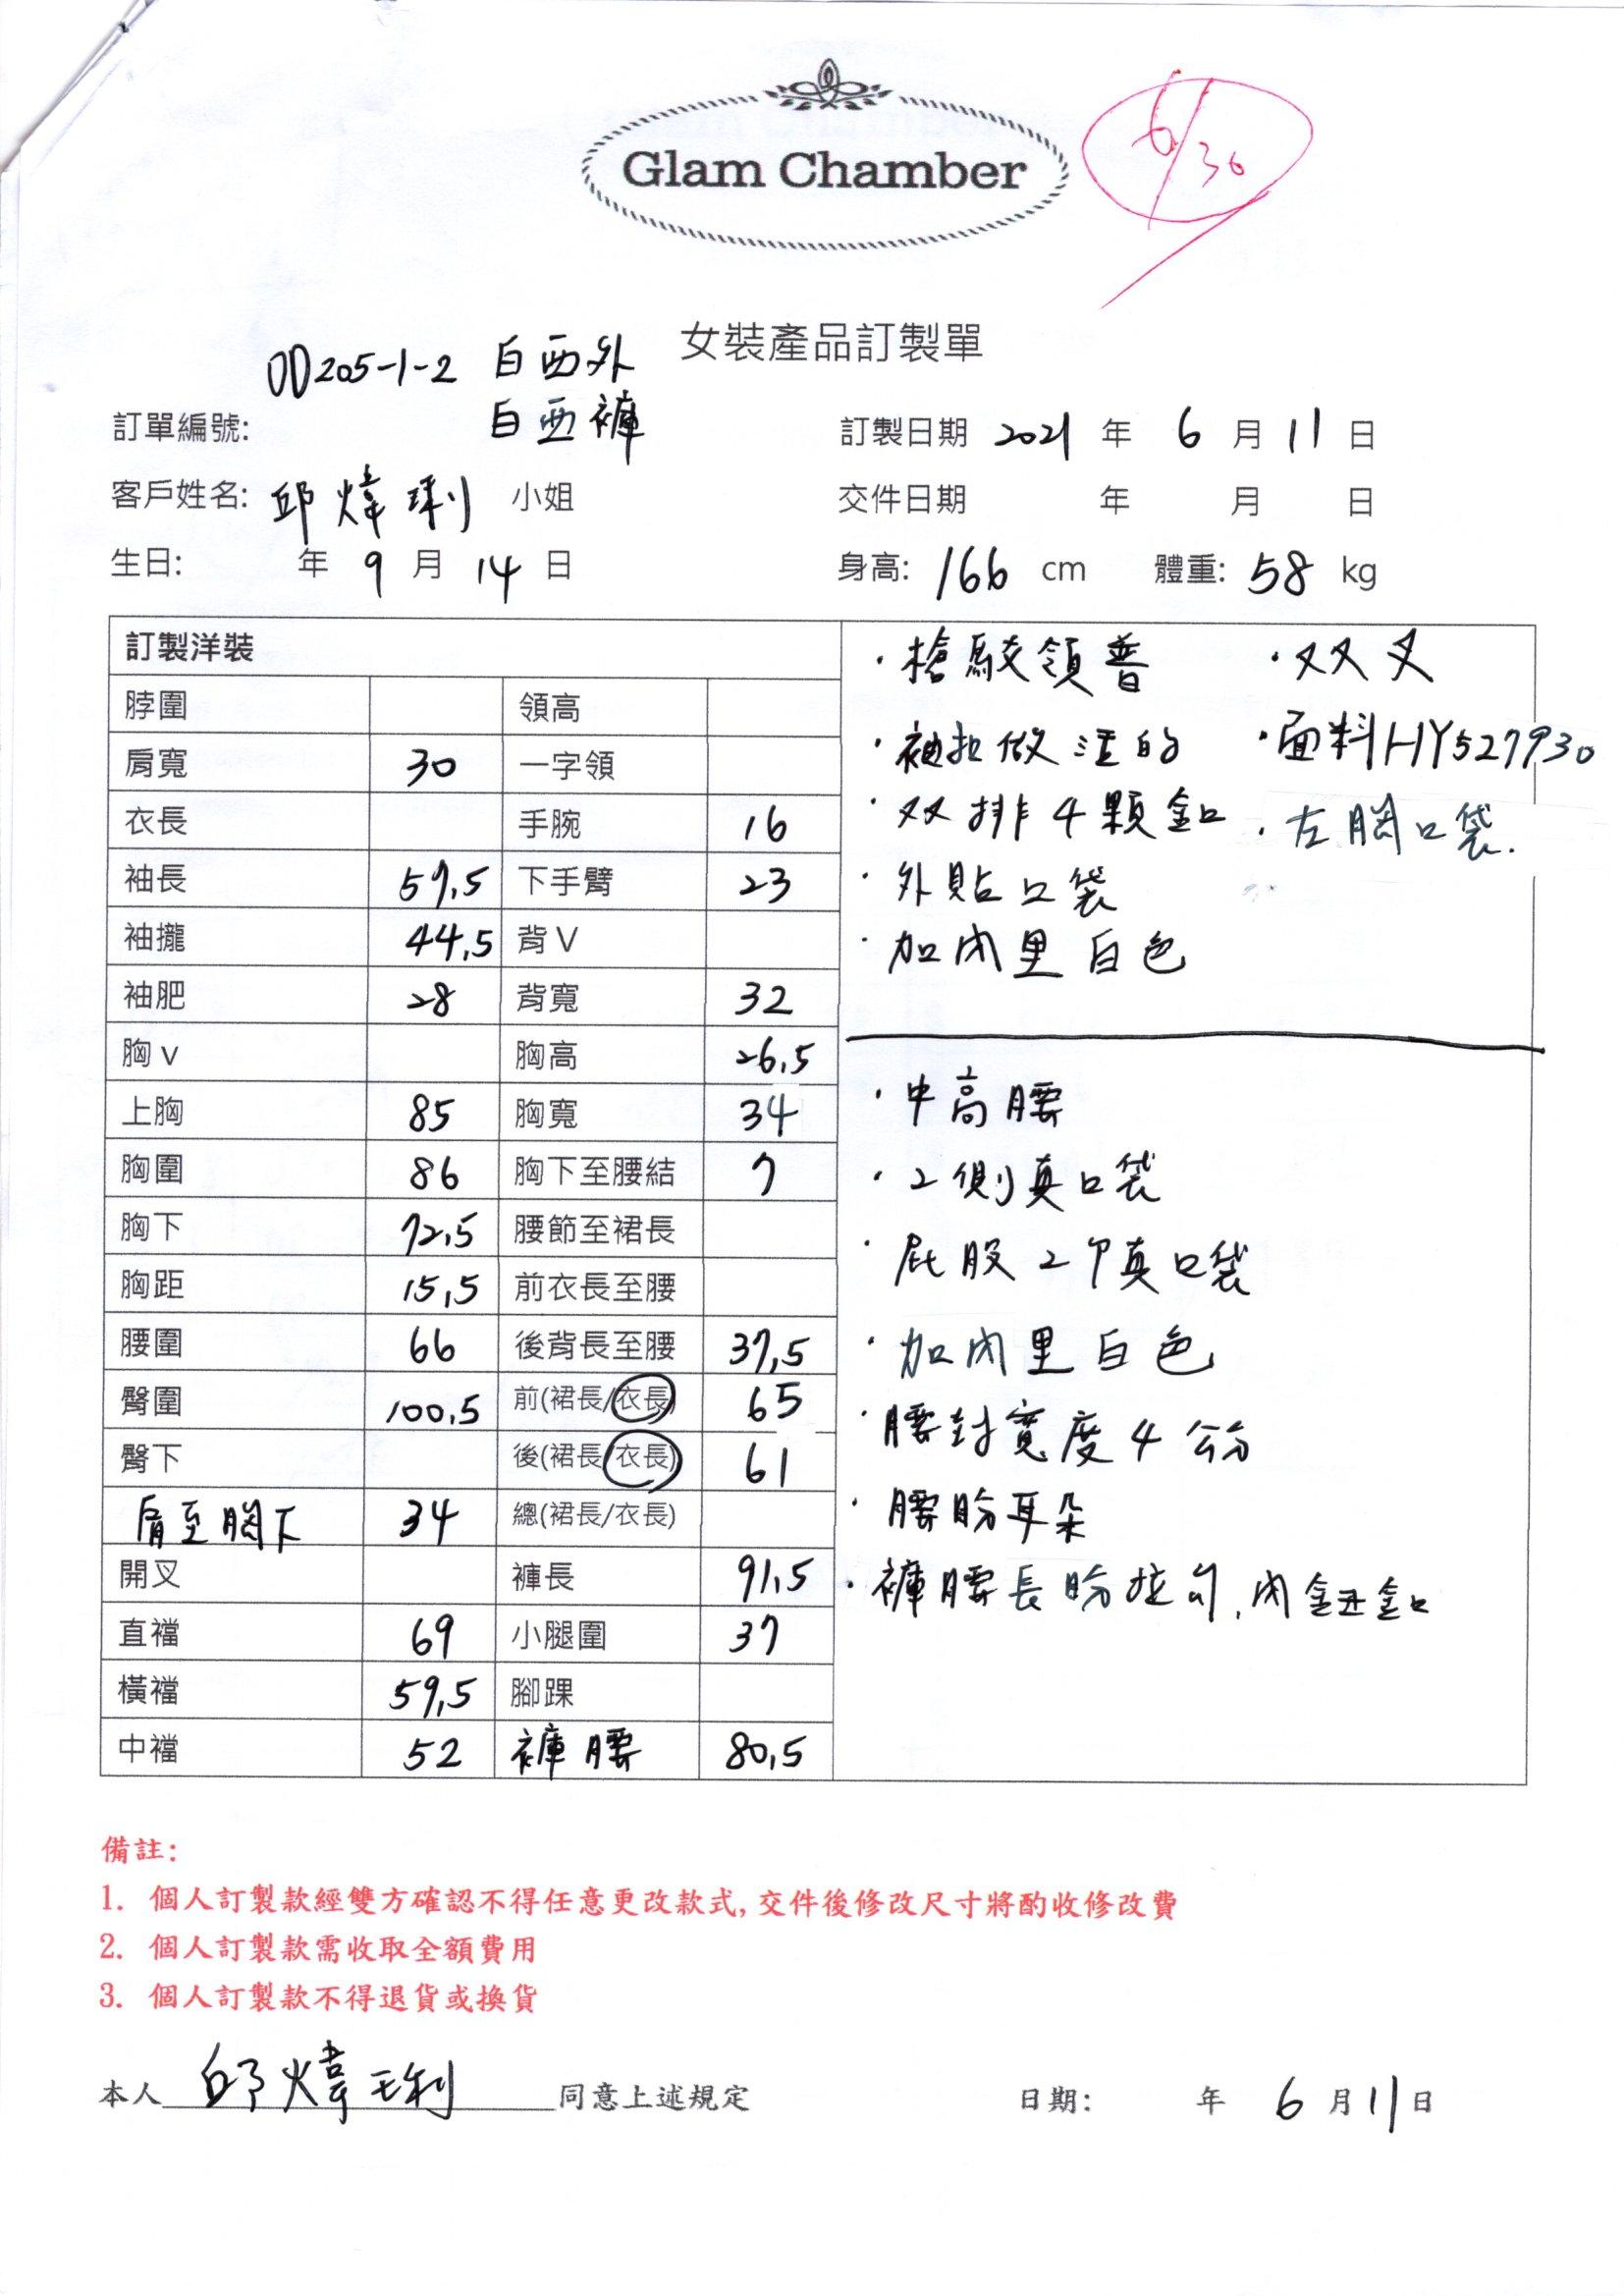 Glam Chamber
6/30
女裝產品訂製單
OD205-1-2 白西外
白西褲
訂單編號:
訂製日期 2021 年 6 月 11 日
客戶姓名: 邱煒琍 小姐
交件日期 年 月 日
生日: 年 9 月 14 日
身高: 166 cm 體重: 58 kg
訂製洋裝
脖圍 領高
肩寬 30 一字領
衣長 手腕 16
袖長 57,5 下手臂 23
袖攏 44,5 背V
袖肥 28 背寬 32
胸v 胸高 26,5
上胸 85 胸寬 34
胸圍 86 胸下至腰結 7
胸下 72,5 腰節至裙長
胸距 15,5 前衣長至腰
腰圍 66 後背長至腰 37,5
臀圍 100,5 前(裙長/衣長) 65
臀下 後(裙長/衣長) 61
肩至胸下 34 總(裙長/衣長)
開叉 褲長 91,5
直襠 69 小腿圍 37
橫襠 59,5 腳踝
中襠 52 褲腰 80,5
·槍駁領普 ·双叉
·袖扣做活的 ·面料HY527930
·双排4顆釦 ·左胸口袋.
·外貼口袋
·加內里白色
·中高腰
·2側真口袋
·屁股2个真口袋
·加內里白色
·腰封寬度4公分
·腰盼耳朵
·褲腰長盼拉勾,內鈕釦
備註:
1. 個人訂製款經雙方確認不得任意更改款式,交件後修改尺寸將酌收修改費
2. 個人訂製款需收取全額費用
3. 個人訂製款不得退貨或換貨
本人 邱煒琍 同意上述規定
日期: 年 6 月 11 日